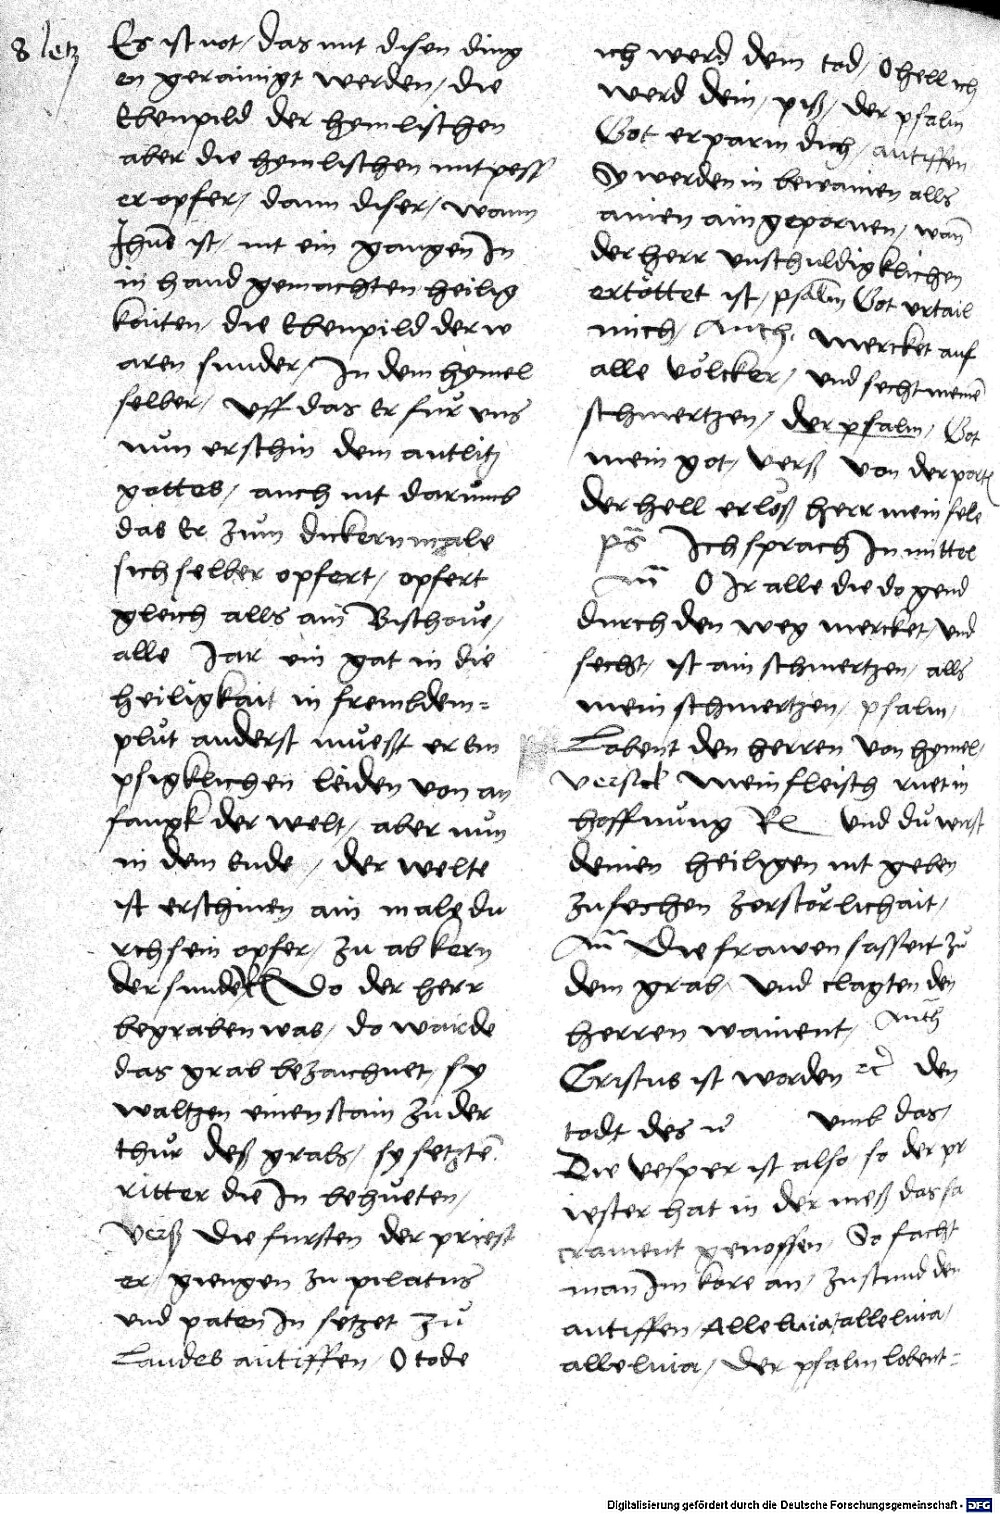 8 letz
Es ist not / das mit disen ding
en gerainigt werden / die
Ebenpild der hymlischen
aber die hymlischen mit pess
er opfer / dann diser / wann
Jhus ist / nit ein gangen In
in hand gemachten heilig
kaiten / die Ebenpild der w
aren sunder / In den hymel
selber / Uff das Er fur uns
nun erschin dem antlitz
gottes / auch nit darumb
das Er zum dickernmale
sich selber opfert / opfert
gleich alls ain Bischove /
alle Jar ein gat in die
heiligkait in frembdem=
plut anderst muest er em
psigklichen leiden von an
fangk der welt / aber nun
in dem Ende / der welte
ist erschinen ain male du
rch sein opfer / zu ab kern
der sunde Do der herr
begraben was / do warde
das grab bezaichnet / sy
waltzen einen stain zu der
thur deß grabs / sy setzten
ritter die In behueten /
Verß Die fursten der priest
er / giengen zu pilatus
und paten In setzet zu
Laudes antiffen / O tode
ich werd dem tod / O hell ich
werd dein / piß / der psalm
Got erparm dich / antiffen
Sy werden in bewainen alls
ainen aingepornen / wan
der herr unschuldigklichen
ertöttet ist / psalm Got urtail
mich / Anth. mercket auf
alle völcker / und secht meinen
schmertzen / der psalm / Got
mein got / Verß Von der port
der hell erlöß herr mein sele
ps Ich sprach In mittel
an O Ir alle die do gend
durch den weg mercket / und
secht / ist ain schmertzen / alls
mein schmertzen / psalm /
Lobent den herren von hymel /
Versick Mein fleisch ruet in
hoffnung R Und du wirst
deinen heiligen nit geben
zusechen zerstörlichait /
An Die frawen sassent zu
dem grab / Und clagten den
herren wainent / Anth
Cristus ist worden etc den
todt des umb das /
Die Vesper ist also / so der pr
iester hat in der meß das sa
crament genossen / So facht
man Im kore an / zustund den
antiffen / Alleluia / alleluia /
alleluia / Der psalm lobent=
Digitalisierung gefördert durch die Deutsche Forschungsgemeinschaft - DFG